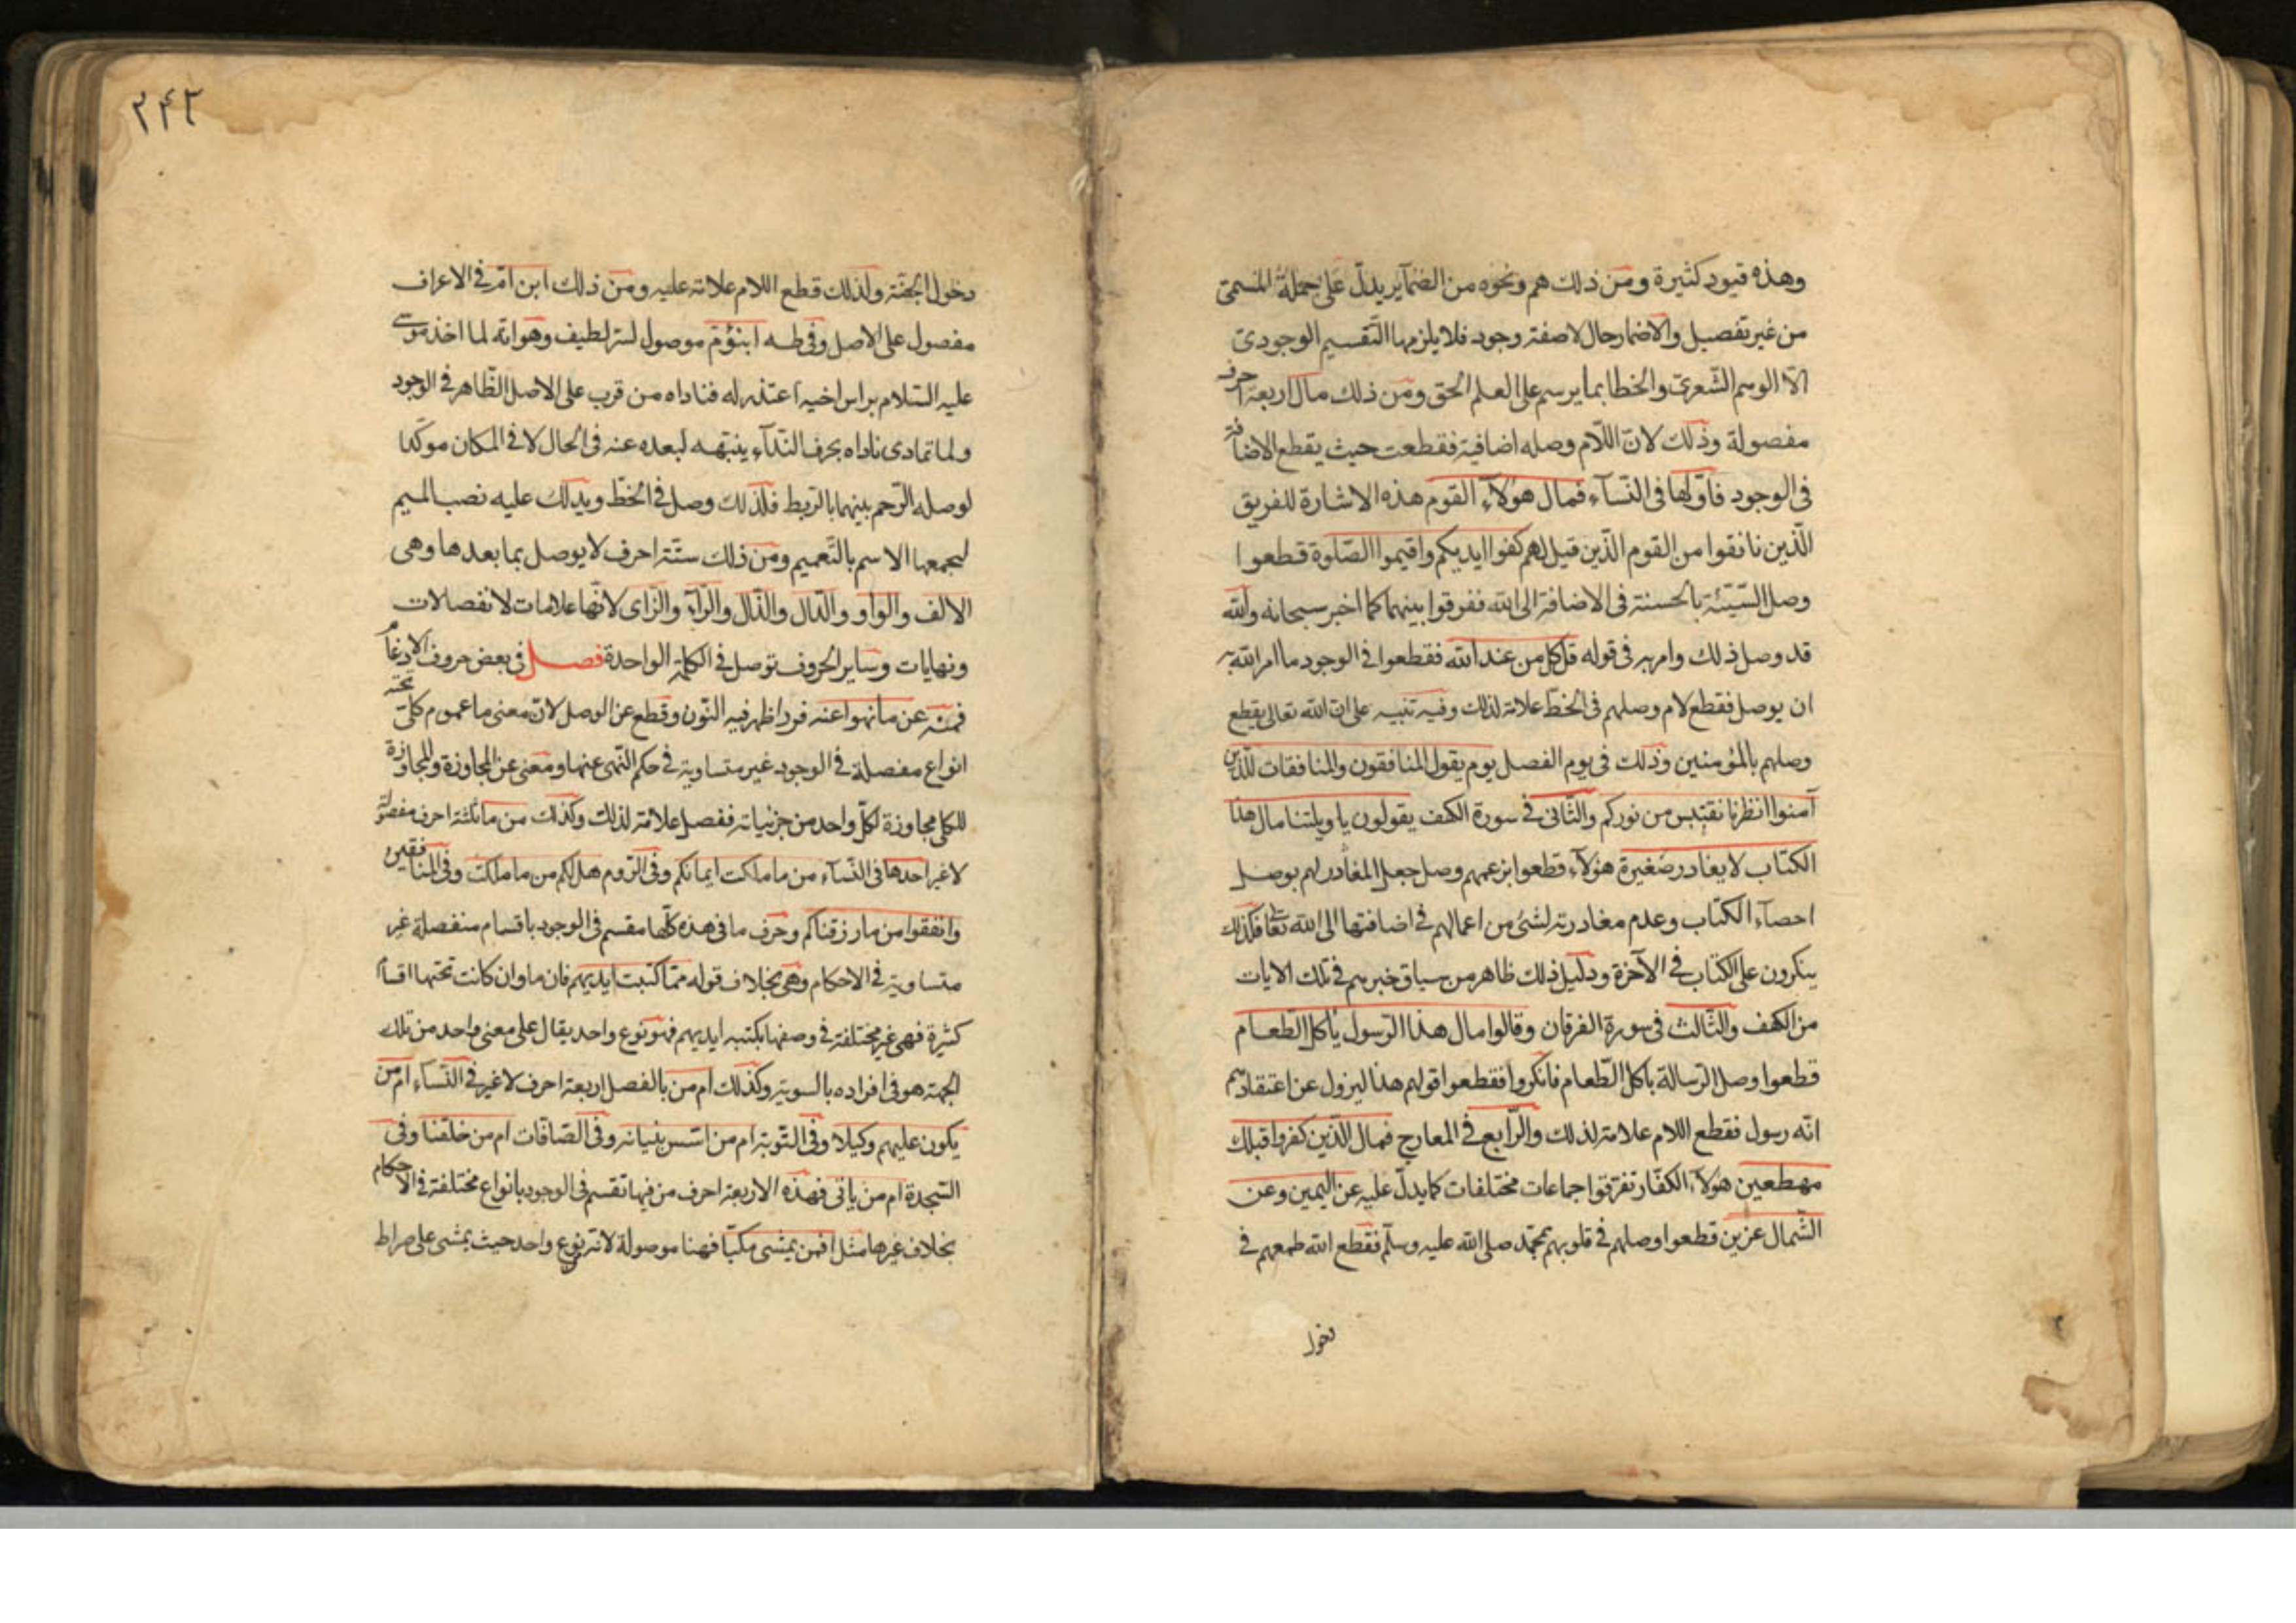 وهذه قيود كثيرة ومن ذلك هم ونحوه من الضمآير يدلّ على جملة المسمّى
من غير تفصيل والاضمار حال لا صفة وجود فلا يلزمها التّقسيم الوجودىّ
الّا الوسم الشّعرىّ والخطا بما يرسم على العلم الحق ومن ذلك مال اربعة احرف
مفصولة وذلك لانّ اللّام وصله اضافية فقطعت حيث يقطع الاضافة
فى الوجود فاوّلها فى النّسآء فمال هؤلآء القوم هذه الاشارة للفريق
الّذين نافقوا من القوم الّذين قيل لهم كفوا ايديكم واقيموا الصّلوة قطعوا
وصل السّيّئة بالحسنة فى الاضافة الى الله ففرقوا بينهما كما اخبر سبحانه والله
قد وصل ذلك وامر به فى قوله قل كل من عند الله فقطعوا فى الوجود ما امر الله به
ان يوصل فقطع لام وصلهم فى الخطّ علامة لذلك وفيه تنبيه على انّ الله تعالى يقطع
وصلهم بالمؤمنين وذلك فى يوم الفصل يوم يقول المنافقون والمنافقات للّذين
آمنوا انظرنا نقتبس من نوركم والثّانى فى سورة الكهف يقولون يا ويلتنا مال هذا
الكتاب لا يغادر صغيرة هؤلآء قطعوا بزعمهم وصل جعل المغادر لهم بوصل
احصآء الكتاب وعدم مغادرته لشئ من اعمالهم فى اضافتها الى الله تعا فكذلك
ينكرون على الكتاب فى الآخرة ودليل ذلك ظاهر من سياق خبرهم فى تلك الايات
من الكهف والثّالث فى سورة الفرقان وقالوا مال هذا الرّسول ياكل الطّعام
قطعوا وصل الرّسالة باكل الطّعام فانكروا فقطعوا قولهم هذا ليزول عن اعتقادهم
انّه رسول فقطع اللام علامة لذلك والرّابع فى المعارج فمال الّذين كفروا قبلك
مهطعين هؤلآء الكفّار تفرّقوا جماعات مختلفات كما يدلّ عليه عن اليمين وعن
الشّمال عزين قطعوا وصلهم فى قلوبهم بمحمّد صلى الله عليه وسلّم فقطع الله طمعهم فى
دخول
٢٤٢
دخول الجنّة ولذلك قطع اللام علامة عليه ومن ذلك ابن امّ فى الاعراف
مفصول على الاصل وفى طه ابنؤمّ موصول لسرّ لطيف وهو انّه لما اخذ موسى
عليه السّلام براس اخيه اعتذر له فناداه من قرب على الاصل الظّاهر فى الوجود
ولما تمادى ناداه بحرف النّدآء ينبّهه لبعده عنه فى الحال لا فى المكان موكّدا
لوصله الرّحم بينهما بالرّبط فلذلك وصل فى الخطّ ويدلّك عليه نصب الميم
ليجمعها الاسم بالتّعميم ومن ذلك ستّة احرف لا يوصل بما بعدها وهى
الالف والواو والدّال والذّال والرّآء والزّاى لانّها علامات لانفصالات
ونهايات وساير الحروف توصل فى الكلمة الواحدة فصل فى بعض حروف الادغام
فمنه عن ما نهوا عنه فرد اظهر فيه النّون وقطع عن الوصل لانّ معنى ما عموم كلىّ تحته
انواع مفصلة فى الوجود غير متساوية فى حكم النّهى عنها ومعنى عن المجاوزة والمجاوزة
للكلى مجاوزة لكلّ واحد من جزئياته ففصل علامة لذلك وكذلك من ما ثلثة احرف مفصولة
لا غير احدها فى النّسآء من ما ملكت ايمانكم وفى الرّوم هل لكم من ما ملكت وفى المنافقين
وانفقوا من ما رزقناكم وحرف ما فى هذه كلّها مقسم فى الوجود باقسام منفصلة غير
متساوية فى الاحكام وهى بخلاف قوله ممّا كتبت ايديهم فان ما وان كانت تحتها اقسام
كثيرة فهى غير مختلفة فى وصفها بكتبه ايديهم فهو نوع واحد يقال على معنى واحد من تلك
الجهة هو فى افراده بالسوية وكذلك ام من بالفصل اربعة احرف لا غير فى النّسآء ام من
يكون عليهم وكيلا وفى التّوبة ام من اسّس بنيانه وفى الصّافّات ام من خلقنا وفى
السّجدة ام من ياتى فهذه الاربعة احرف من فيها تقسم فى الوجود بانواع مختلفة فى الاحكام
بخلاف غيرها مثل افمن يمشى مكبّا فهنا موصولة لانّه نوع واحد حيث يمشى على صراط